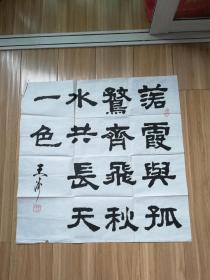 落霞與孤
鶩齊飛秋
水共長天
一色